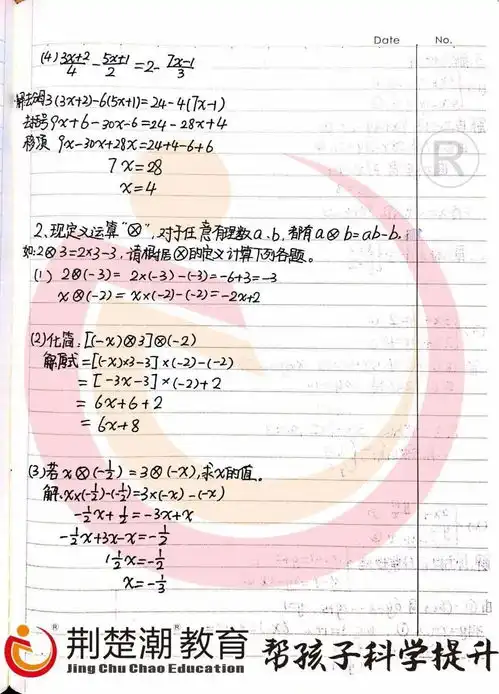 Date No.
(4) (3x+2)/4 - (5x+1)/2 = 2 - (7x-1)/3
解去分母3(3x+2)-6(5x+1)=24-4(7x-1)
去括号 9x+6-30x-6=24-28x+4
移项 9x-30x+28x=24+4-6+6
7x=28
x=4
2、现定义运算“⊗”,对于任意有理数a、b,都有a⊗b=ab-b,
如:2⊗3=2×3-3,请根据⊗的定义计算下列各题。
(1) 2⊗(-3)= 2×(-3)-(-3)=-6+3=-3
x⊗(-2)= x×(-2)-(-2)=-2x+2
(2)化简:[(-x)⊗3]⊗(-2)
解原式=[(-x)×3-3]×(-2)-(-2)
=[-3x-3]×(-2)+2
=6x+6+2
=6x+8
(3)若x⊗(-1/2)=3⊗(-x),求x的值。
解:x×(-1/2)-(-1/2)=3×(-x)-(-x)
-1/2x+1/2=-3x+x
-1/2x+3x-x=-1/2
1 1/2x=-1/2
x=-1/3
®
荆楚潮教育®
Jing Chu Chao Education
帮孩子科学提升